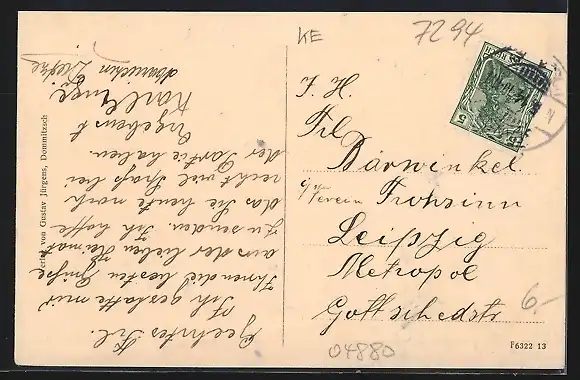 KE
7294
I. H.
Frl.
Bärwinkel
Verein Frohsinn
Leipzig
Metropol
Gottschedstr
6.-
04880
F6322 13
Verlag von Gustav Jürgens, Dommitzsch
Geehrtes Frl.
Ich gestatte mir
Ihnen die besten Grüße
aus der lieben Heimat
zu senden. Ich hoffe
das Sie heute noch
recht viel Spaß bei
der Partie haben.
Ergebenst
Karl